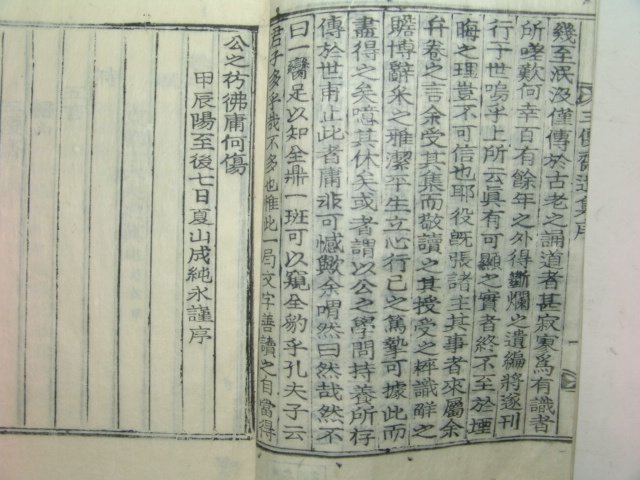 三便齋逸集序
幾至泯沒僅傳於古老之誦道者甚寂寞爲有識者
所嗟歎何幸百有餘年之外得斷爛之遺編將逐刊
行于世嗚乎上所云眞有可顯之實者終不至於堙
晦之理豈不可信也耶役旣張諸主其事者來屬余
弁卷之言余受其集而敬讀之其授受之粹識解之
贍博辭采之雅潔平生立心行己之篤摯可據此而
盡得之矣噫其休矣或者謂以公之學問持養所存
傳於世甫止此者庸非可憾歟余喟然曰然哉然不
曰一臠足以知全鼎一班可以窺全豹乎孔夫子云
君子多乎哉不多也惟此一局文字善讀之自當得
公之彷彿庸何傷
甲辰陽至後七日夏山成純永謹序